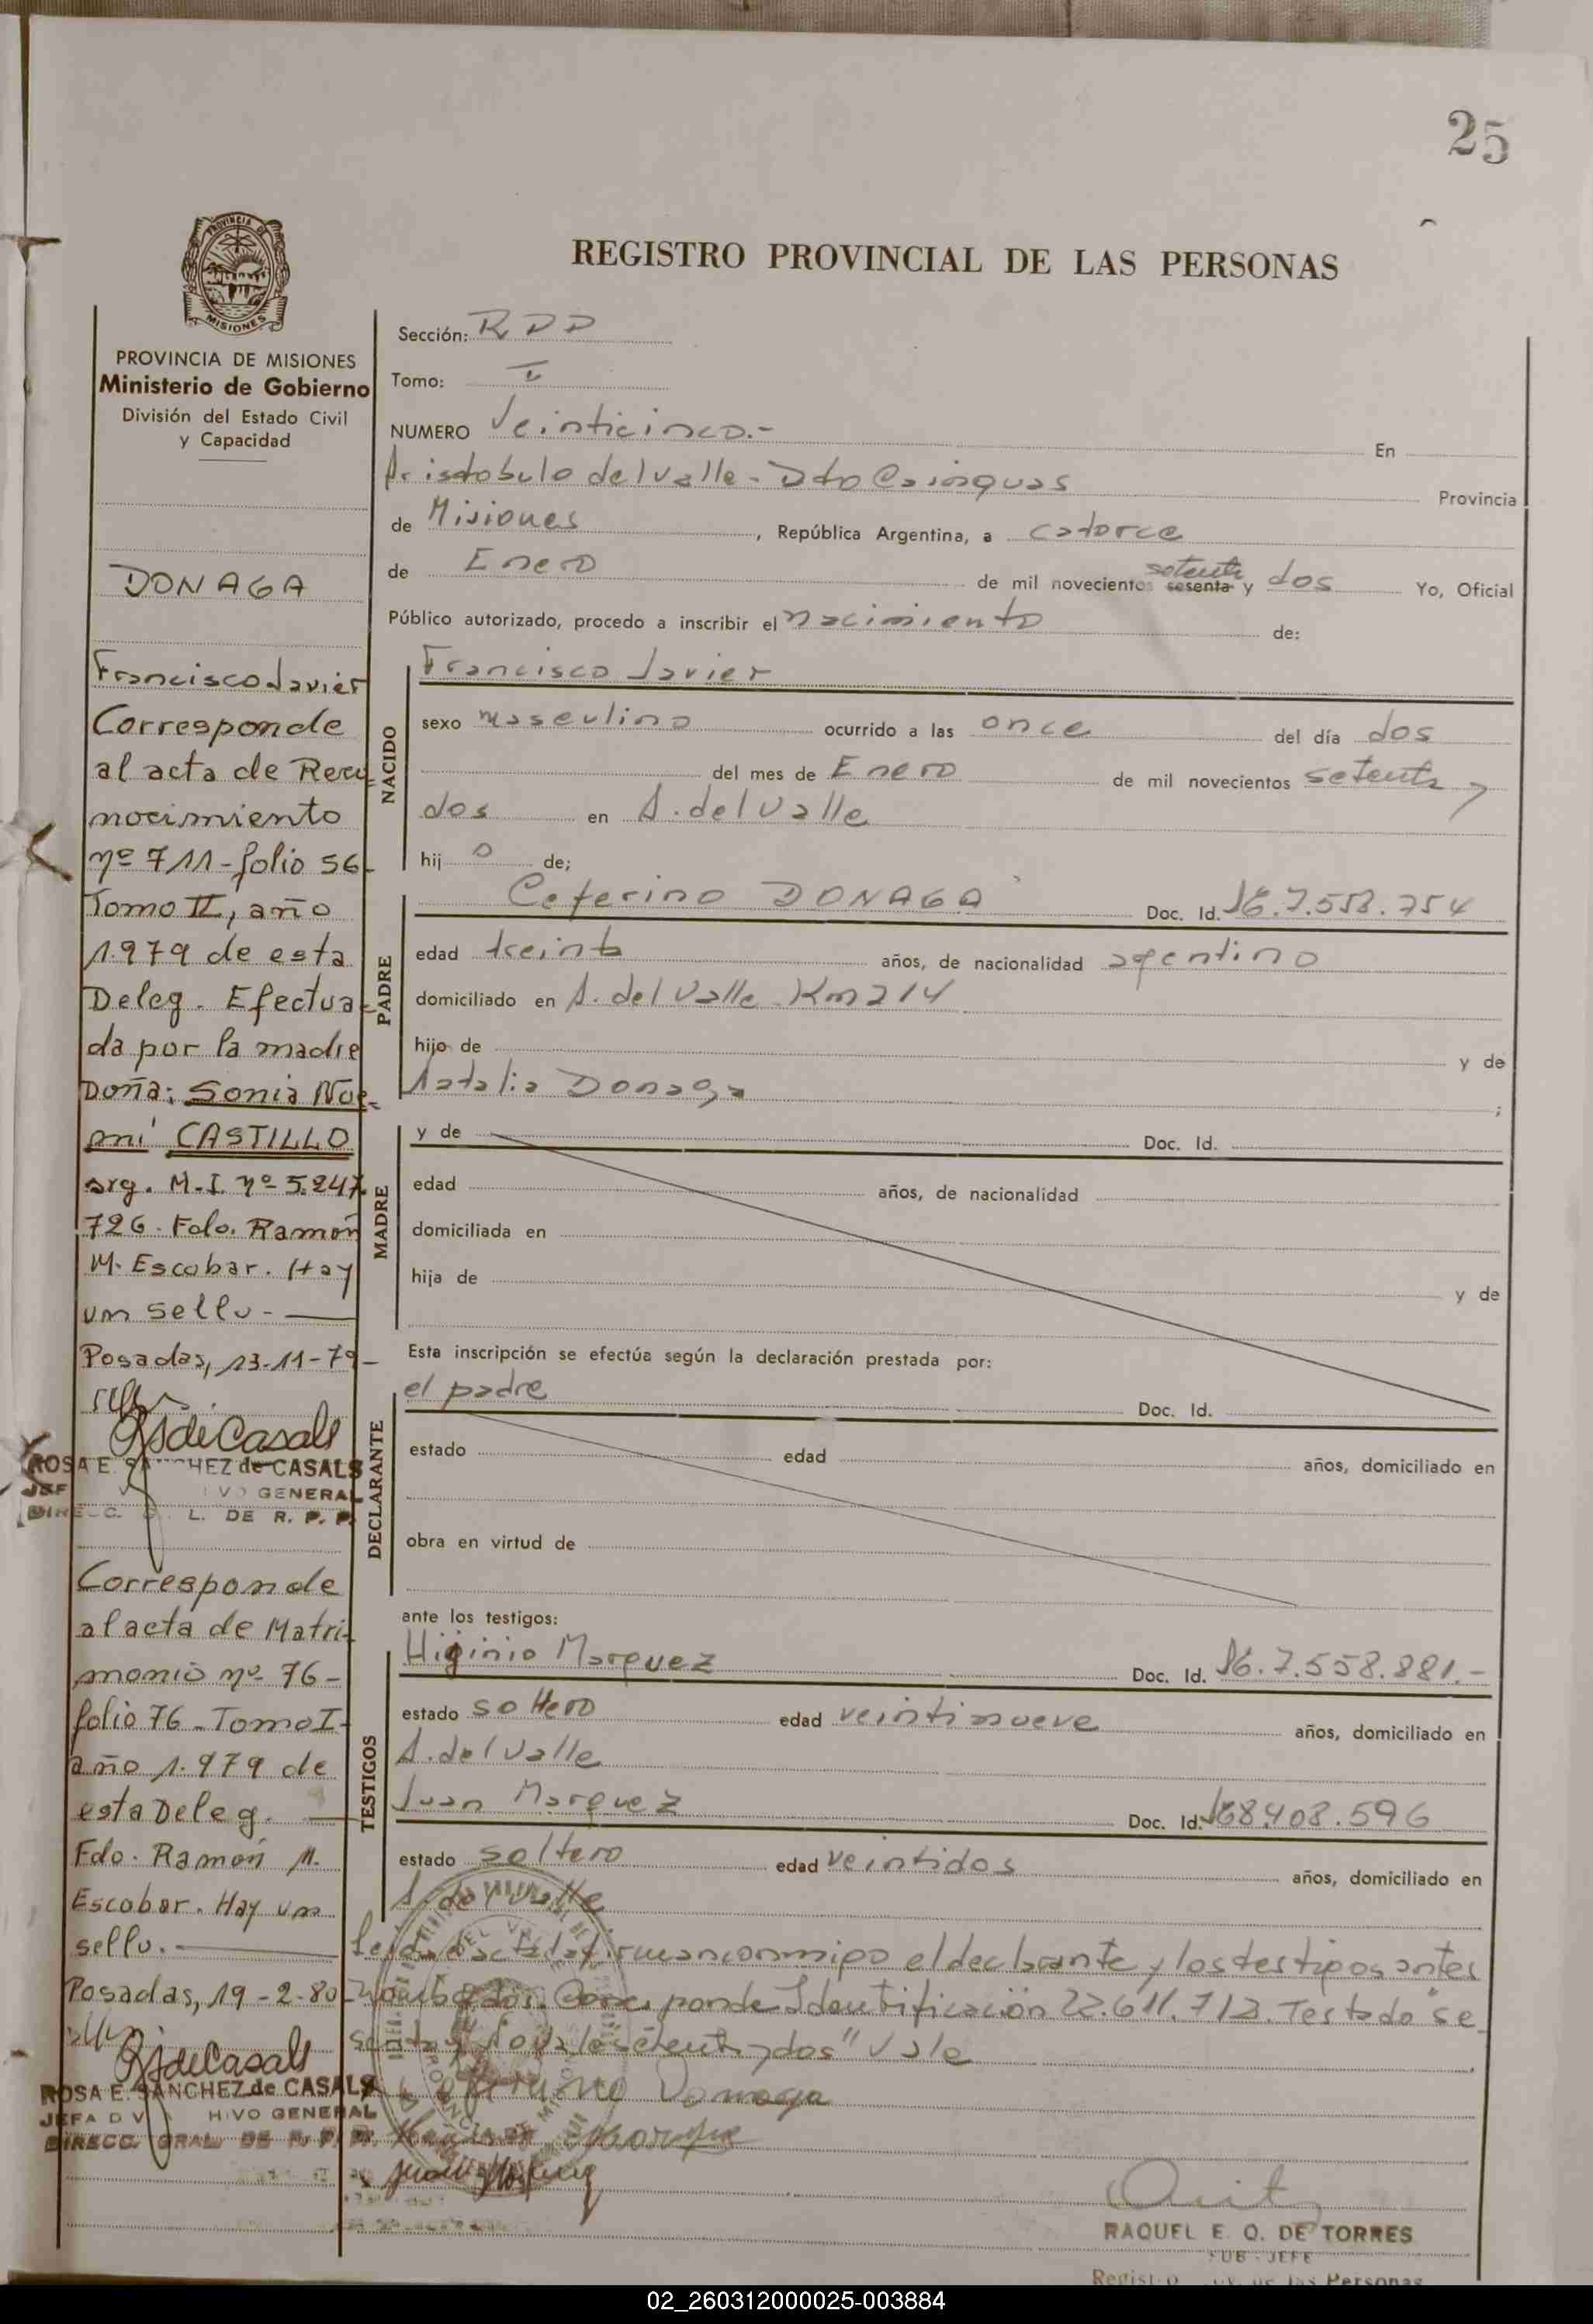 25
PROVINCIA DE
MISIONES
REGISTRO PROVINCIAL DE LAS PERSONAS
PROVINCIA DE MISIONES
Ministerio de Gobierno
División del Estado Civil
y Capacidad
DONAGA
Francisco Javier
Corresponde
al acta de Reco
nocimiento
nº 711 - folio 56 -
Tomo II, año
1.979 de esta
Deleg. Efectua-
da por la madre
Doña: Sonia Noe-
mí CASTILLO
arg. M.I. nº 5.247.
726. Fdo. Ramón
M. Escobar. Hay
un sello -
Posadas, 13-11-79 -
RSdeCasals
ROSA E. SANCHEZ de CASALS
JEF VO GENERAL
DIRECC. L. DE R. P. P.
Corresponde
al acta de Matri-
monio nº 76 -
folio 76 - Tomo I -
año 1.979 de
esta Deleg.
Fdo. Ramón M.
Escobar. Hay un
sello. -
Posadas, 19 - 2 - 80 -
RSdeCasals
ROSA E. SANCHEZ de CASALS
JEFA DIV HIVO GENERAL
DIRECC. GRAL DE R. P. P.
Sección: RDD
Tomo: I
NUMERO Veinticinco.- En
Aristobulo del Valle - Dto Cainguas Provincia
de Misiones , República Argentina, a catorce
de Enero de mil novecientos sesenta setenta y dos Yo, Oficial
Público autorizado, procedo a inscribir el nacimiento de:
NACIDO
Francisco Javier
sexo masculino ocurrido a las once del día dos
del mes de Enero de mil novecientos setenta y
dos en A. del Valle
hij o de;
PADRE
Ceferino DONAGA Doc. Id. M6.7.558.754
edad treinta años, de nacionalidad argentino
domiciliado en A. del Valle - Km 214
hijo de y de
Natalia Donaga ;
MADRE
y de Doc. Id.
edad años, de nacionalidad
domiciliada en
hija de y de
Esta inscripción se efectúa según la declaración prestada por:
DECLARANTE
el padre Doc. Id.
estado edad años, domiciliado en
obra en virtud de
ante los testigos:
TESTIGOS
Higinio Marquez Doc. Id. M6.7.558.881.-
estado soltero edad veintinueve años, domiciliado en
A. del Valle
Juan Marquez Doc. Id. M68.408.596
estado soltero edad veintidos años, domiciliado en
A. del Valle
Leida el acta la firman conmigo el declarante y los testigos antes
nombrados. Corresponde Identificación 22.611.713. Testado "se
senta" setenta y dos" Vale
Donaga
RAQUEL E. Q. DE TORRES
SUB - JEFE
Registro de las Personas
02_260312000025-003884